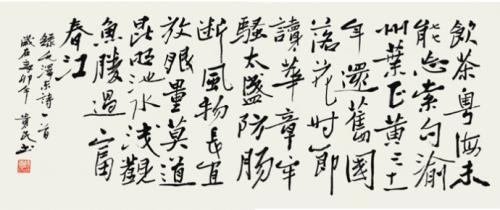 飲茶粤海未
能忘索句渝
州葉正黄三十一
年還舊國
落花時節
讀華章牢
騷太盛防腸
斷風物長宜
放眼量莫道
昆明池水淺觀
魚勝過富
春江
錄毛澤東詩一首
歲在辛卯年